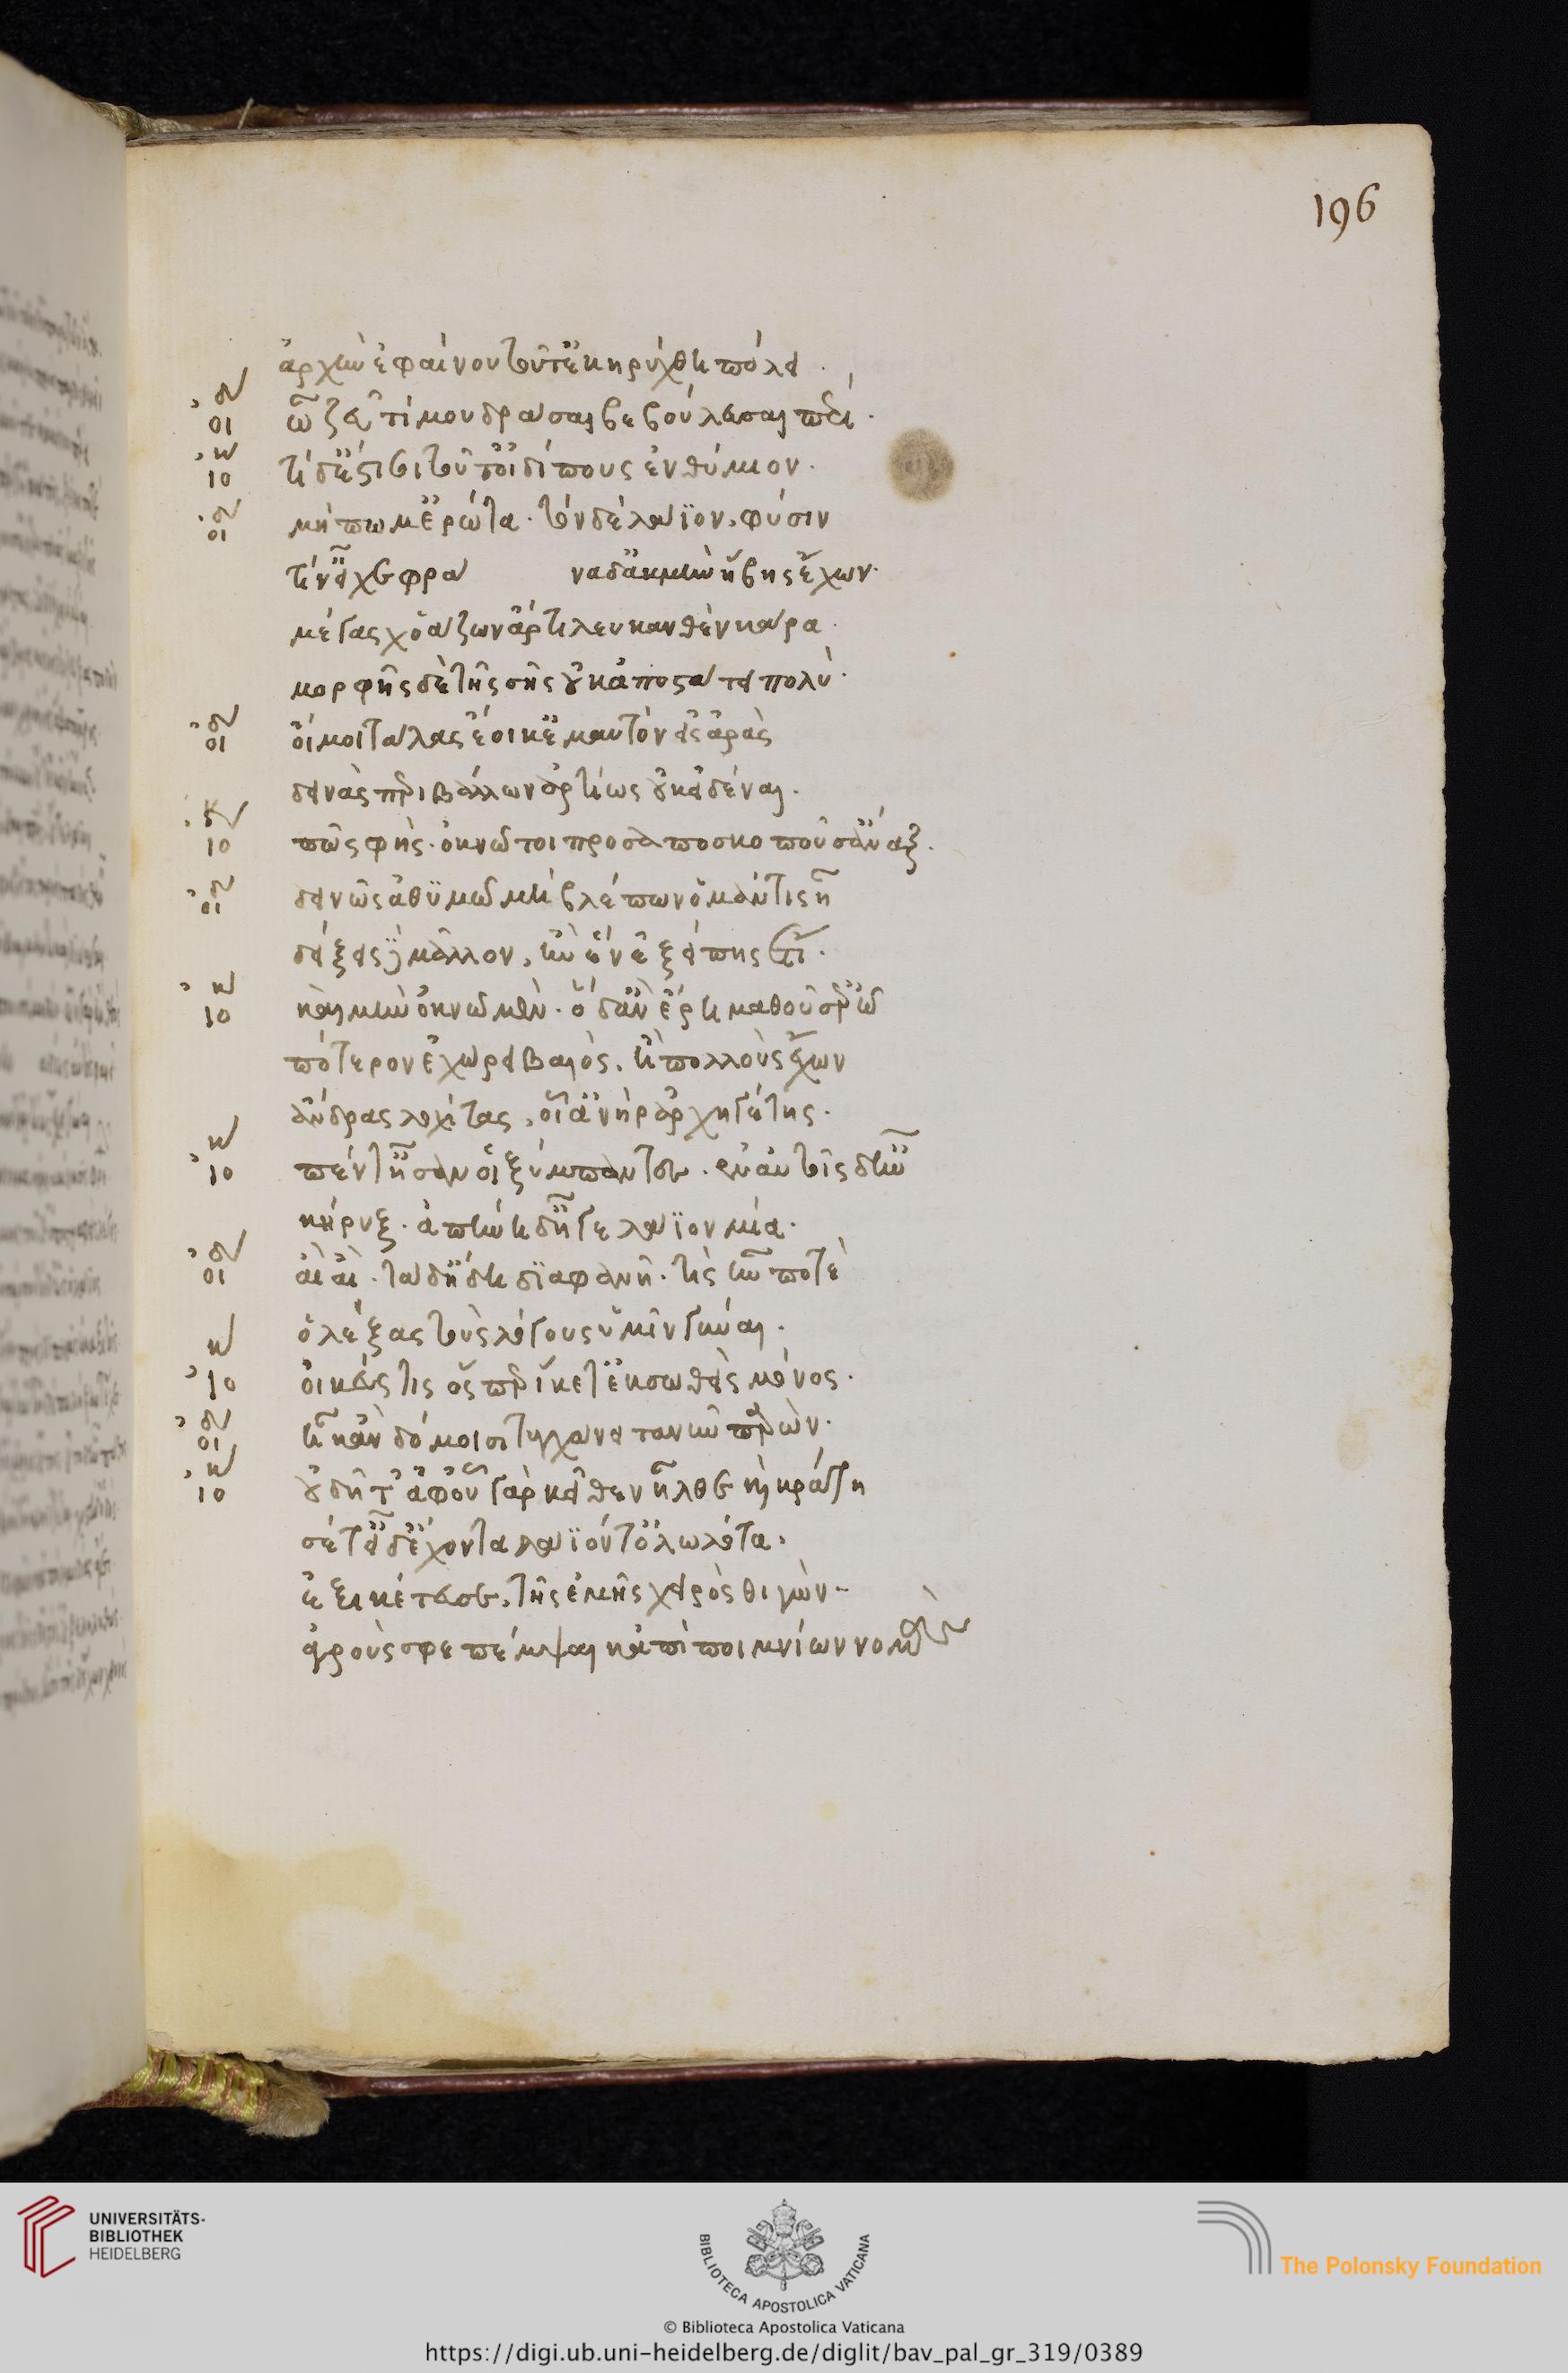 196
ἀρχὴν ἐφαίνου τοῦτ' ἐκηρύχθη πόλει.
οἰδ ὦ ζεῦ τί μου δρᾶσαι βεβούλευσαι πέρι.
ἰοκ τί δ' ἐστί σοι τοῦτ' οἰδίπους ἐνθύμιον.
οἰδ μήπω μ' ἐρώτα. τὸν δὲ λάϊον, φύσιν
τίν' εἶχε φρά να δ' ἀκμὴν ἥβης ἔχων.
μέγας χὀάζων ἄρτι λευκανθὲν κάρα.
μορφῆς δὲ τῆς σῆς οὐκ ἀποστάτει πολύ.
οἰδ οἴμοι τάλας ἔοικ' ἐμαυτὸν εἰς ἀρὰς
δεινὰς περιβάλλων ἀρτίως οὐκ εἰδέναι.
ἰοκ πῶς φής. ὀκνῶ τοι πρός σ' ἀποσκοποῦσ' ἄναξ.
οἰδ δεινῶς ἀθϋμῶ μὴ βλέπων ὁ μάντις ᾖ
δείξεις δὲ μᾶλλον, ἢν ἓν ἐξείπης ἔτι.
ἰοκ καὶ μὴν ὀκνῶ μέν. ὃ δ' ἂν ἔρη μαθοῦσ' ἐρῶ
πότερον ἐχώρει βαιός, ἢ πολλοὺς ἔχων
ἄνδρας λοχίτας, οἷ' ἀνὴρ ἀρχηγέτης.
ἰοκ πέντ' ἦσαν οἱ ξύμπαντες. ἐν αὐτοῖς δ' ἦν
κήρυξ. ἀπήνη δ' ἦγε λάϊον μία.
οἰδ αἲ αἲ. τάδ' ἤδη δϊαφανῆ. τίς ἦν ποτὲ
ὁ λέξας τοὺς λόγους ὑμῖν γύναι.
ἰοκ οἰκεύς τις ὅσπερ ἵκετ' ἐκσωθεὶς μόνος.
οἰδ ἦ κἀν δόμοισι τυγχάνει τανῦν παρών.
ἰοκ οὐ δῆτ' ἀφ' οὗ γὰρ κεῖθεν ἦλθε καὶ κράτη
σέ τ' εἶδ' ἔχοντα λάϊόν τ' ὀλωλότα.
ἐξικέτευσε, τῆς ἐμῆς χειρὸς θιγὼν.
ἀγρούς σφε πέμψαι κἀπὶ ποιμνίων νομάς
UNIVERSITÄTS-
BIBLIOTHEK
HEIDELBERG
BIBLIOTECA APOSTOLICA VATICANA
© Biblioteca Apostolica Vaticana
The Polonsky Foundation
https://digi.ub.uni-heidelberg.de/diglit/bav_pal_gr_319/0389